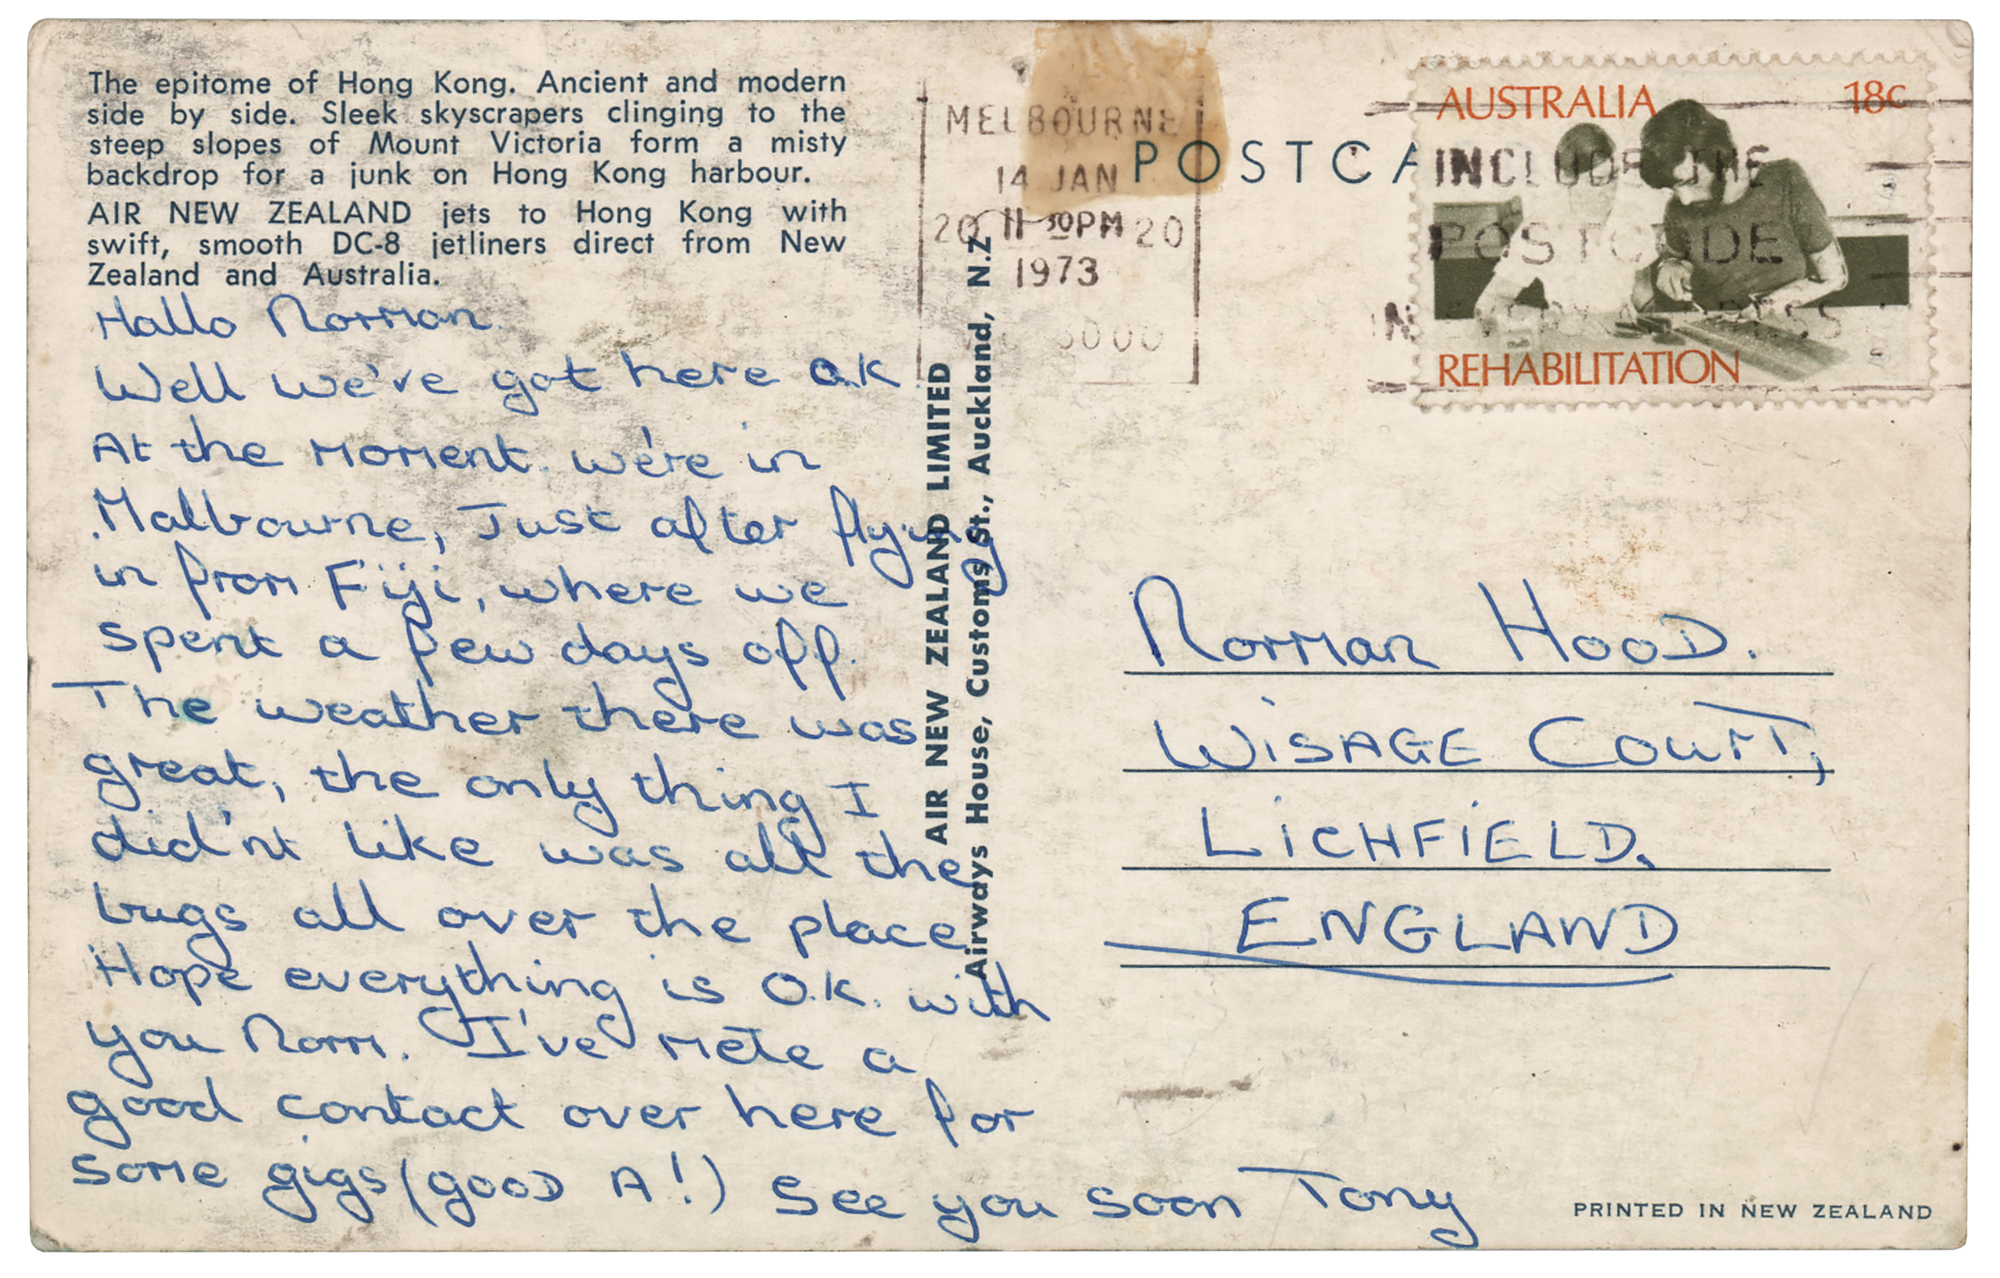 The epitome of Hong Kong. Ancient and modern
side by side. Sleek skyscrapers clinging to the
steep slopes of Mount Victoria form a misty
backdrop for a junk on Hong Kong harbour.
AIR NEW ZEALAND jets to Hong Kong with
swift, smooth DC-8 jetliners direct from New
Zealand and Australia.
Hallo Norman.
Well we've got here O.K.
At the moment we're in
Malbourne, Just after flying
in from Fiji, where we
spent a few days off.
The weather there was
great, the only thing I
did'nt like was all the
bugs all over the place
Hope everything is O.K. with
you Norm. I've mete a
good contact over here for
some gigs (good A!) See you soon Tony
AIR NEW ZEALAND LIMITED
Airways House, Customs St., Auckland, N.Z.
MELBOURNE
14 JAN
20 11 30PM 20
1973
3000
POSTCA
AUSTRALIA 18c
INCLUDE THE
POSTCODE
IN EVERY ADDRESS
REHABILITATION
Norman Hood.
WiSAGE COURT,
LiCHFiELD.
ENGLAND
PRINTED IN NEW ZEALAND